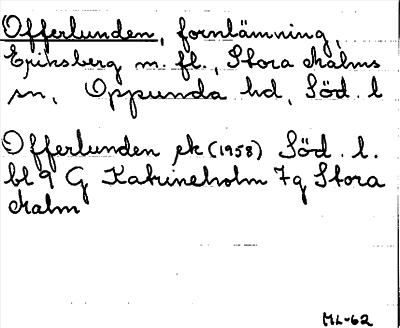 Offerlunden, fornlämning,
Eriksberg m. fl., Stora Malms
sn, Oppunda hd, Söd. l
Offerlunden ek (1958) Söd. l.
bl 9 G Katrineholm 7g Stora
Malm
ML-62